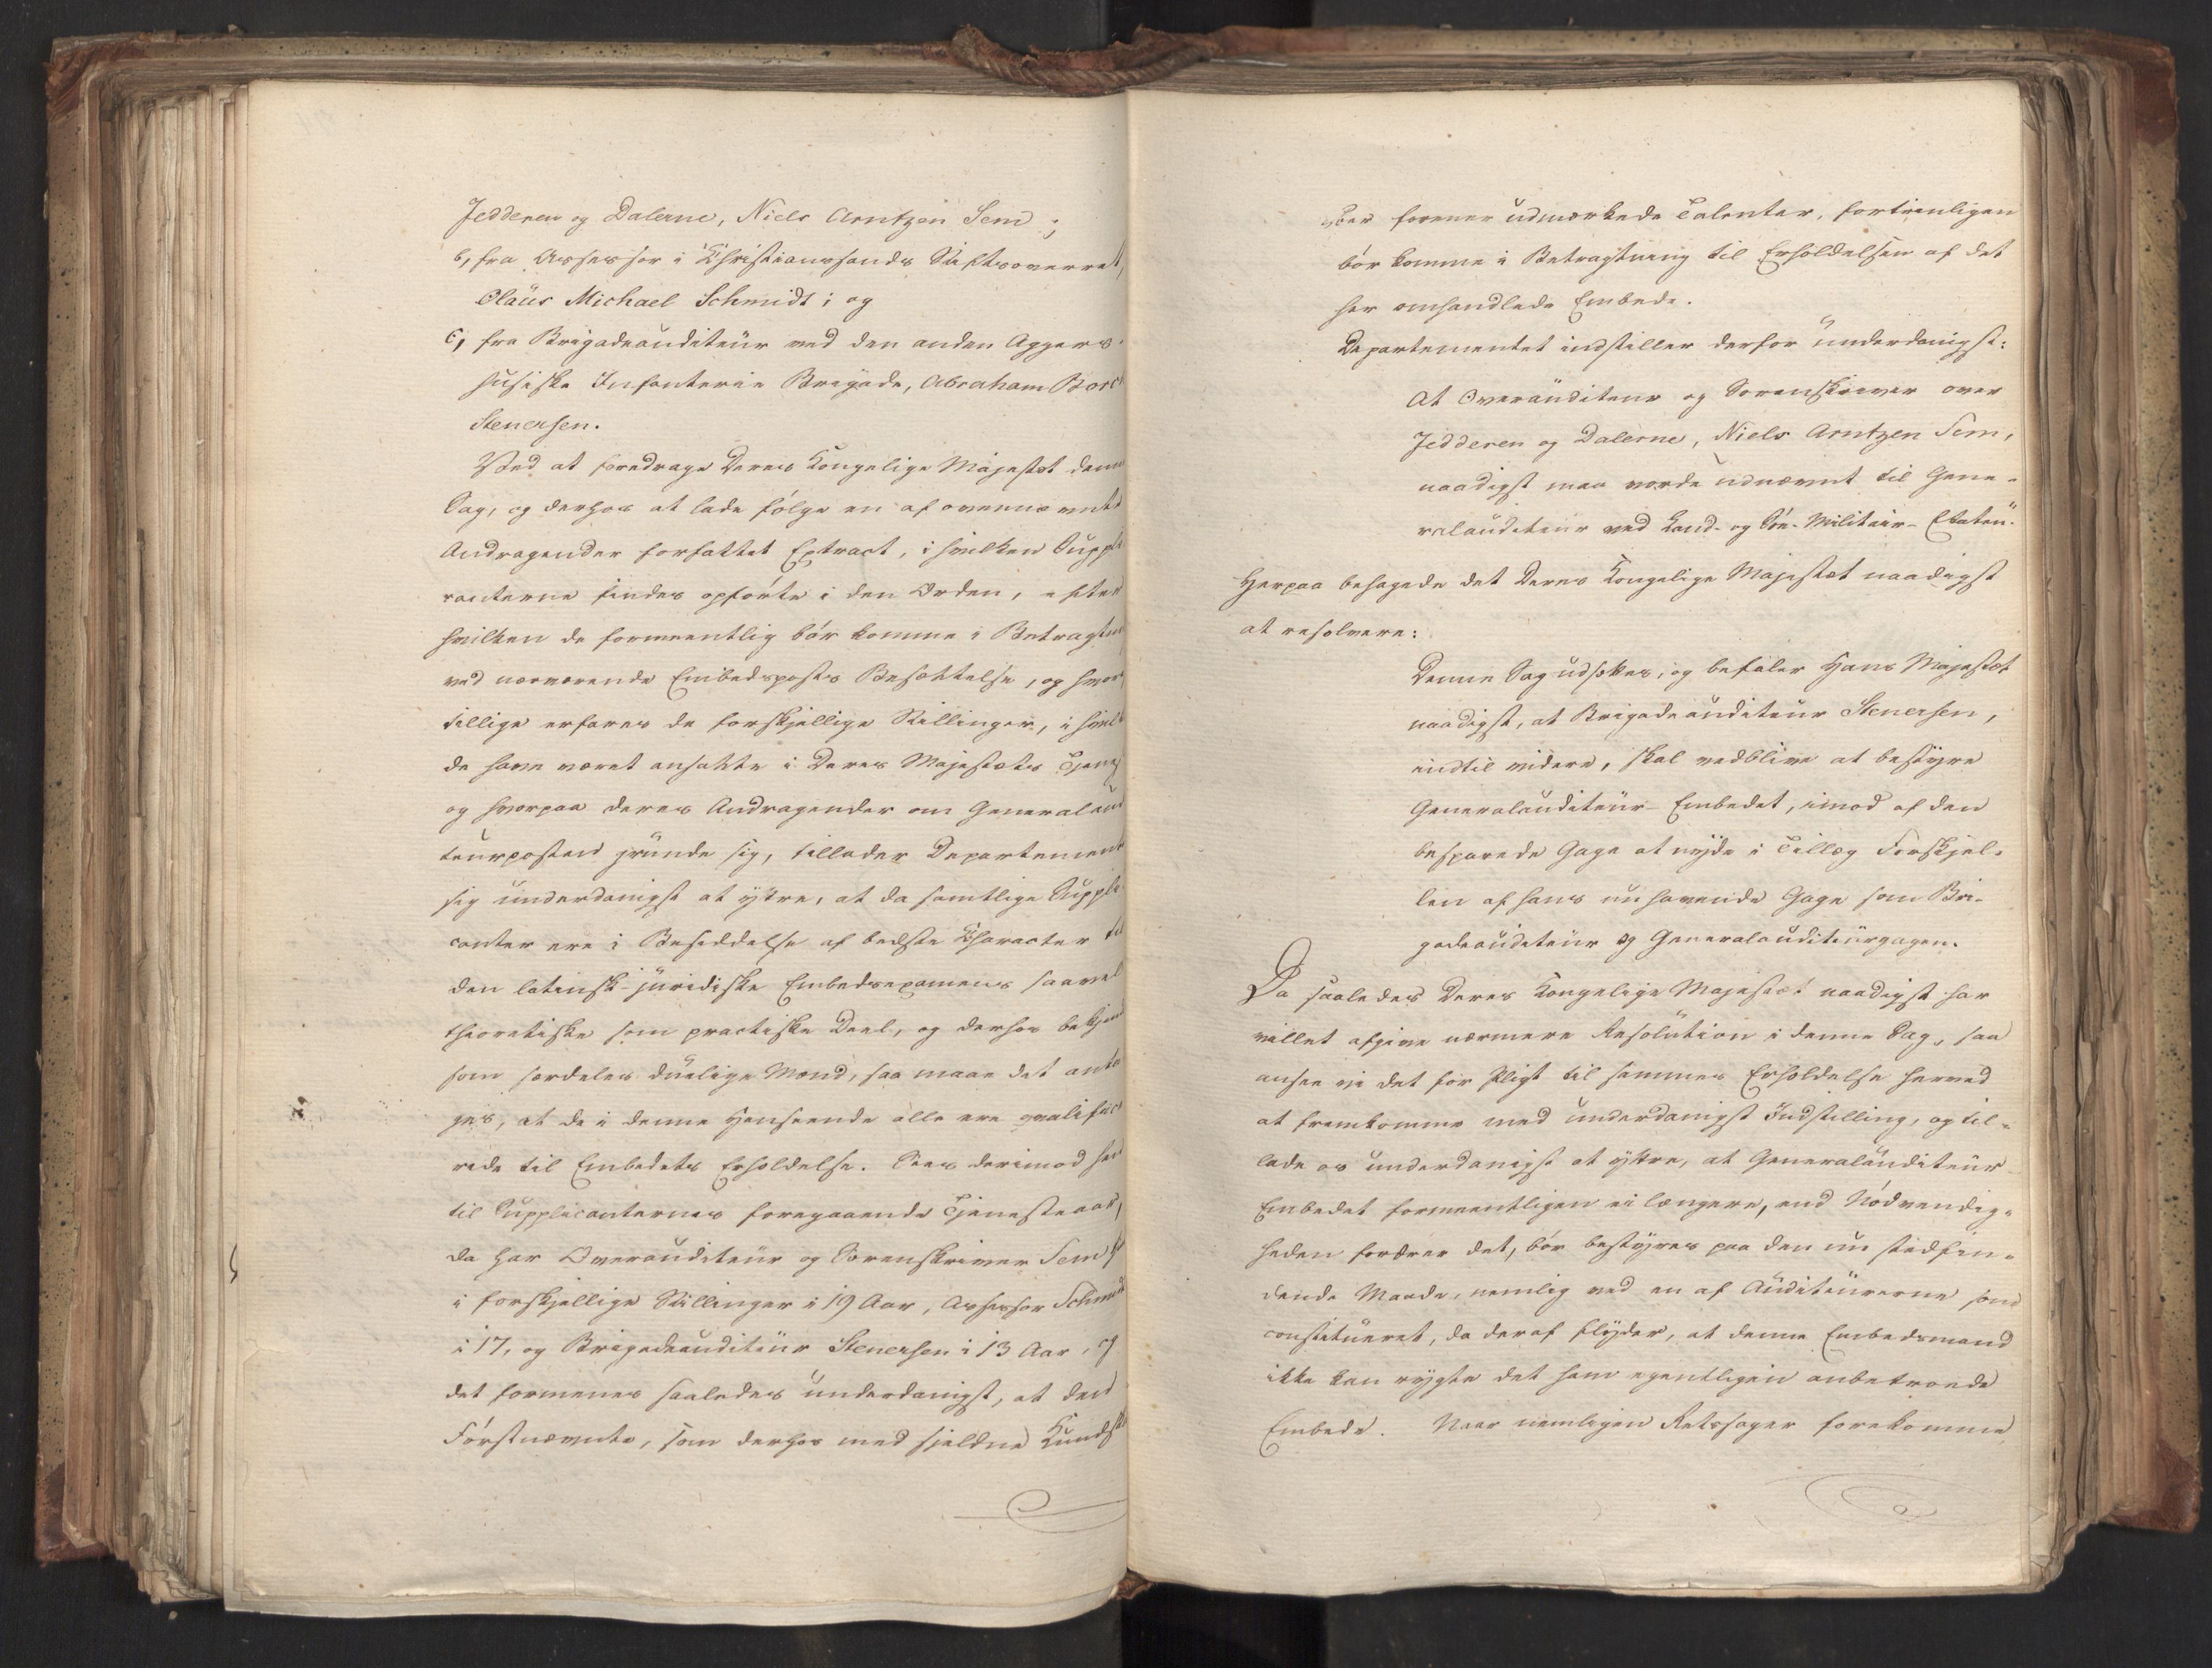 Jedderen og Dalerne, Niels Arntzen Sem;
b, fra Assessor i Christianssands Stiftsoverret,
Claus Michael Schmidt; og
c, fra Brigadeauditeur ved den anden Aggers-
husiske Infanterie Brigade, Abraham Borch
Stenersen.
Ved at foredrage Deres Kongelige Majestæt denne
Sag, og derhos at lade følge en af ovennævnte
Andragender forfattet Extract, i hvilken Suppli
canterne findes opførte i den Orden, efter
hvilken de formeentlig bør komme i Betragtn
ved nærværende Embedsposts Besættelse, og hvor
tillige erfares de forskjellige Stillinger, i hvilk
de have været ansatte i Deres Majestæts Tjenes
og hvorpaa deres Andragender om Generalaudi
teurposten grunde sig, tillader Departement
sig underdanigst at yttre, at da samtlige Suppli
canter ere i Besiddelse af bedste Character til
den latinsk-juridiske Embedsexamens saavel
theoretiske som practiske Deel, og derhos bekjend
som særdeles duelige Mænd, saa maae det anta
ges, at de i denne Henseende alle ere qvalifice
rede til Embedets Erholdelse. Sees derimod hen
til Supplicanternes foregaaende Tjenesteaar,
da har Overauditeur og Sorenskriver Sem
i forskjellige Stillinger i 19 Aar, Assessor Schmidt
i 17, og Brigadeauditeur Stenersen i 13 Aar, og
det formenes saaledes underdanigst, at den
Førstnævnte, som derhos med sjeldne Kundska
ber forener udmærkede Talenter, fortrinligen
bør komme i Betragtning til Erholdelsen af det
her omhandlede Embede.
Departementet indstiller derfor underdanigst:
At Overauditeur og Sorenskriver over
Jedderen og Dalerne, Niels Arntzen Sem,
naadigst maa vorde udnævnt til Gene-
ralauditeur ved Land- og Søe-Militair-Etaten.
Herpaa behagede det Deres Kongelige Majestæt naadigst
at resolvere:
Denne Sag udsættes, og befaler Hans Majestæt
naadigst, at Brigadeauditeur Stenersen,
indtil videre, skal vedblive at bestyre
Generalauditeur-Embedet, imod af den
besparede Gage at nyde i Tillæg Forskjel-
len af hans nu havende Gage som Bri-
gadeauditeur og Generalauditeurgagen.
Da saaledes Deres Kongelige Majestæt naadigst har
villet afgive nærmere Resolution i denne Sag, saa
ansee vi det for Pligt til sammes Erholdelse herved
at fremkomme med underdanigst Indstilling, og til-
lade os underdanigst at yttre, at Generalauditeur-
Embedet formeentligen ei længere, end Nødvendig-
heden fordrer det, bør bestyres paa den nu stedfin-
dende Maade, nemlig ved en af Auditeurerne som
constitueret, da deraf flyder, at denne Embedsmand
ikke kan rygte det ham egentligen anbetroede
Embede. Naar nemligen Retssager forekomme